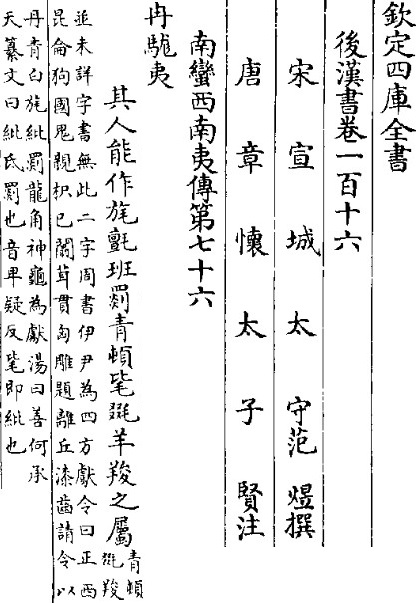 欽定四庫全書
後漢書卷一百十六
宋宣城太守范煜撰
唐章懷太子賢注
南蠻西南夷傳第七十六
冉駹夷
其人能作旄氈班罽青頓毞毲羊羧之屬青頓毞羧
並未詳字書無此二字周書伊尹為四方獻令曰正西
昆侖狗國鬼親枳已闟茸貫匈雕題離丘漆齒請令以
丹青白旄紕罽龍角神龜為獻湯曰善何承
天纂文曰紕氐罽也音卑疑反毞即紕也